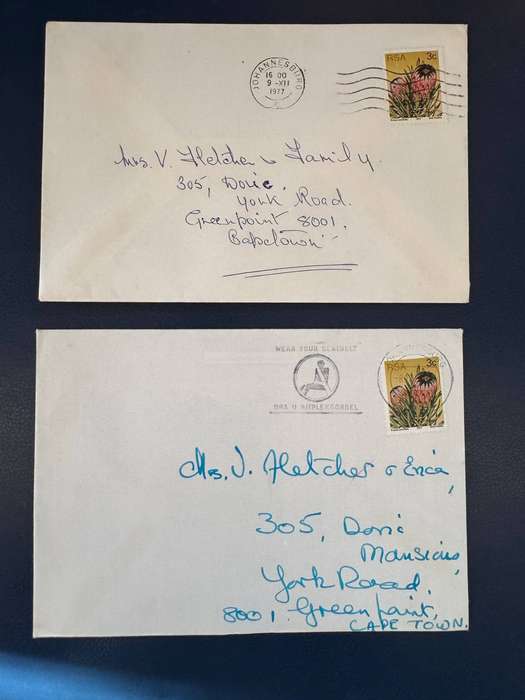 JOHANNESBURG
16 00
9 -XII
1977
RSA 3c
Mrs. V. Fletcher & Family.
305, Doric.
York Road.
Greenpoint 8001.
Capetown
WEAR YOUR SEATBELT
DRA U SITPLEKGORDEL
RSA 3c
Mrs. V. Fletcher & Erica,
305, Doric
Mansions,
York Road,
8001. Greenpoint,
CAPE TOWN.